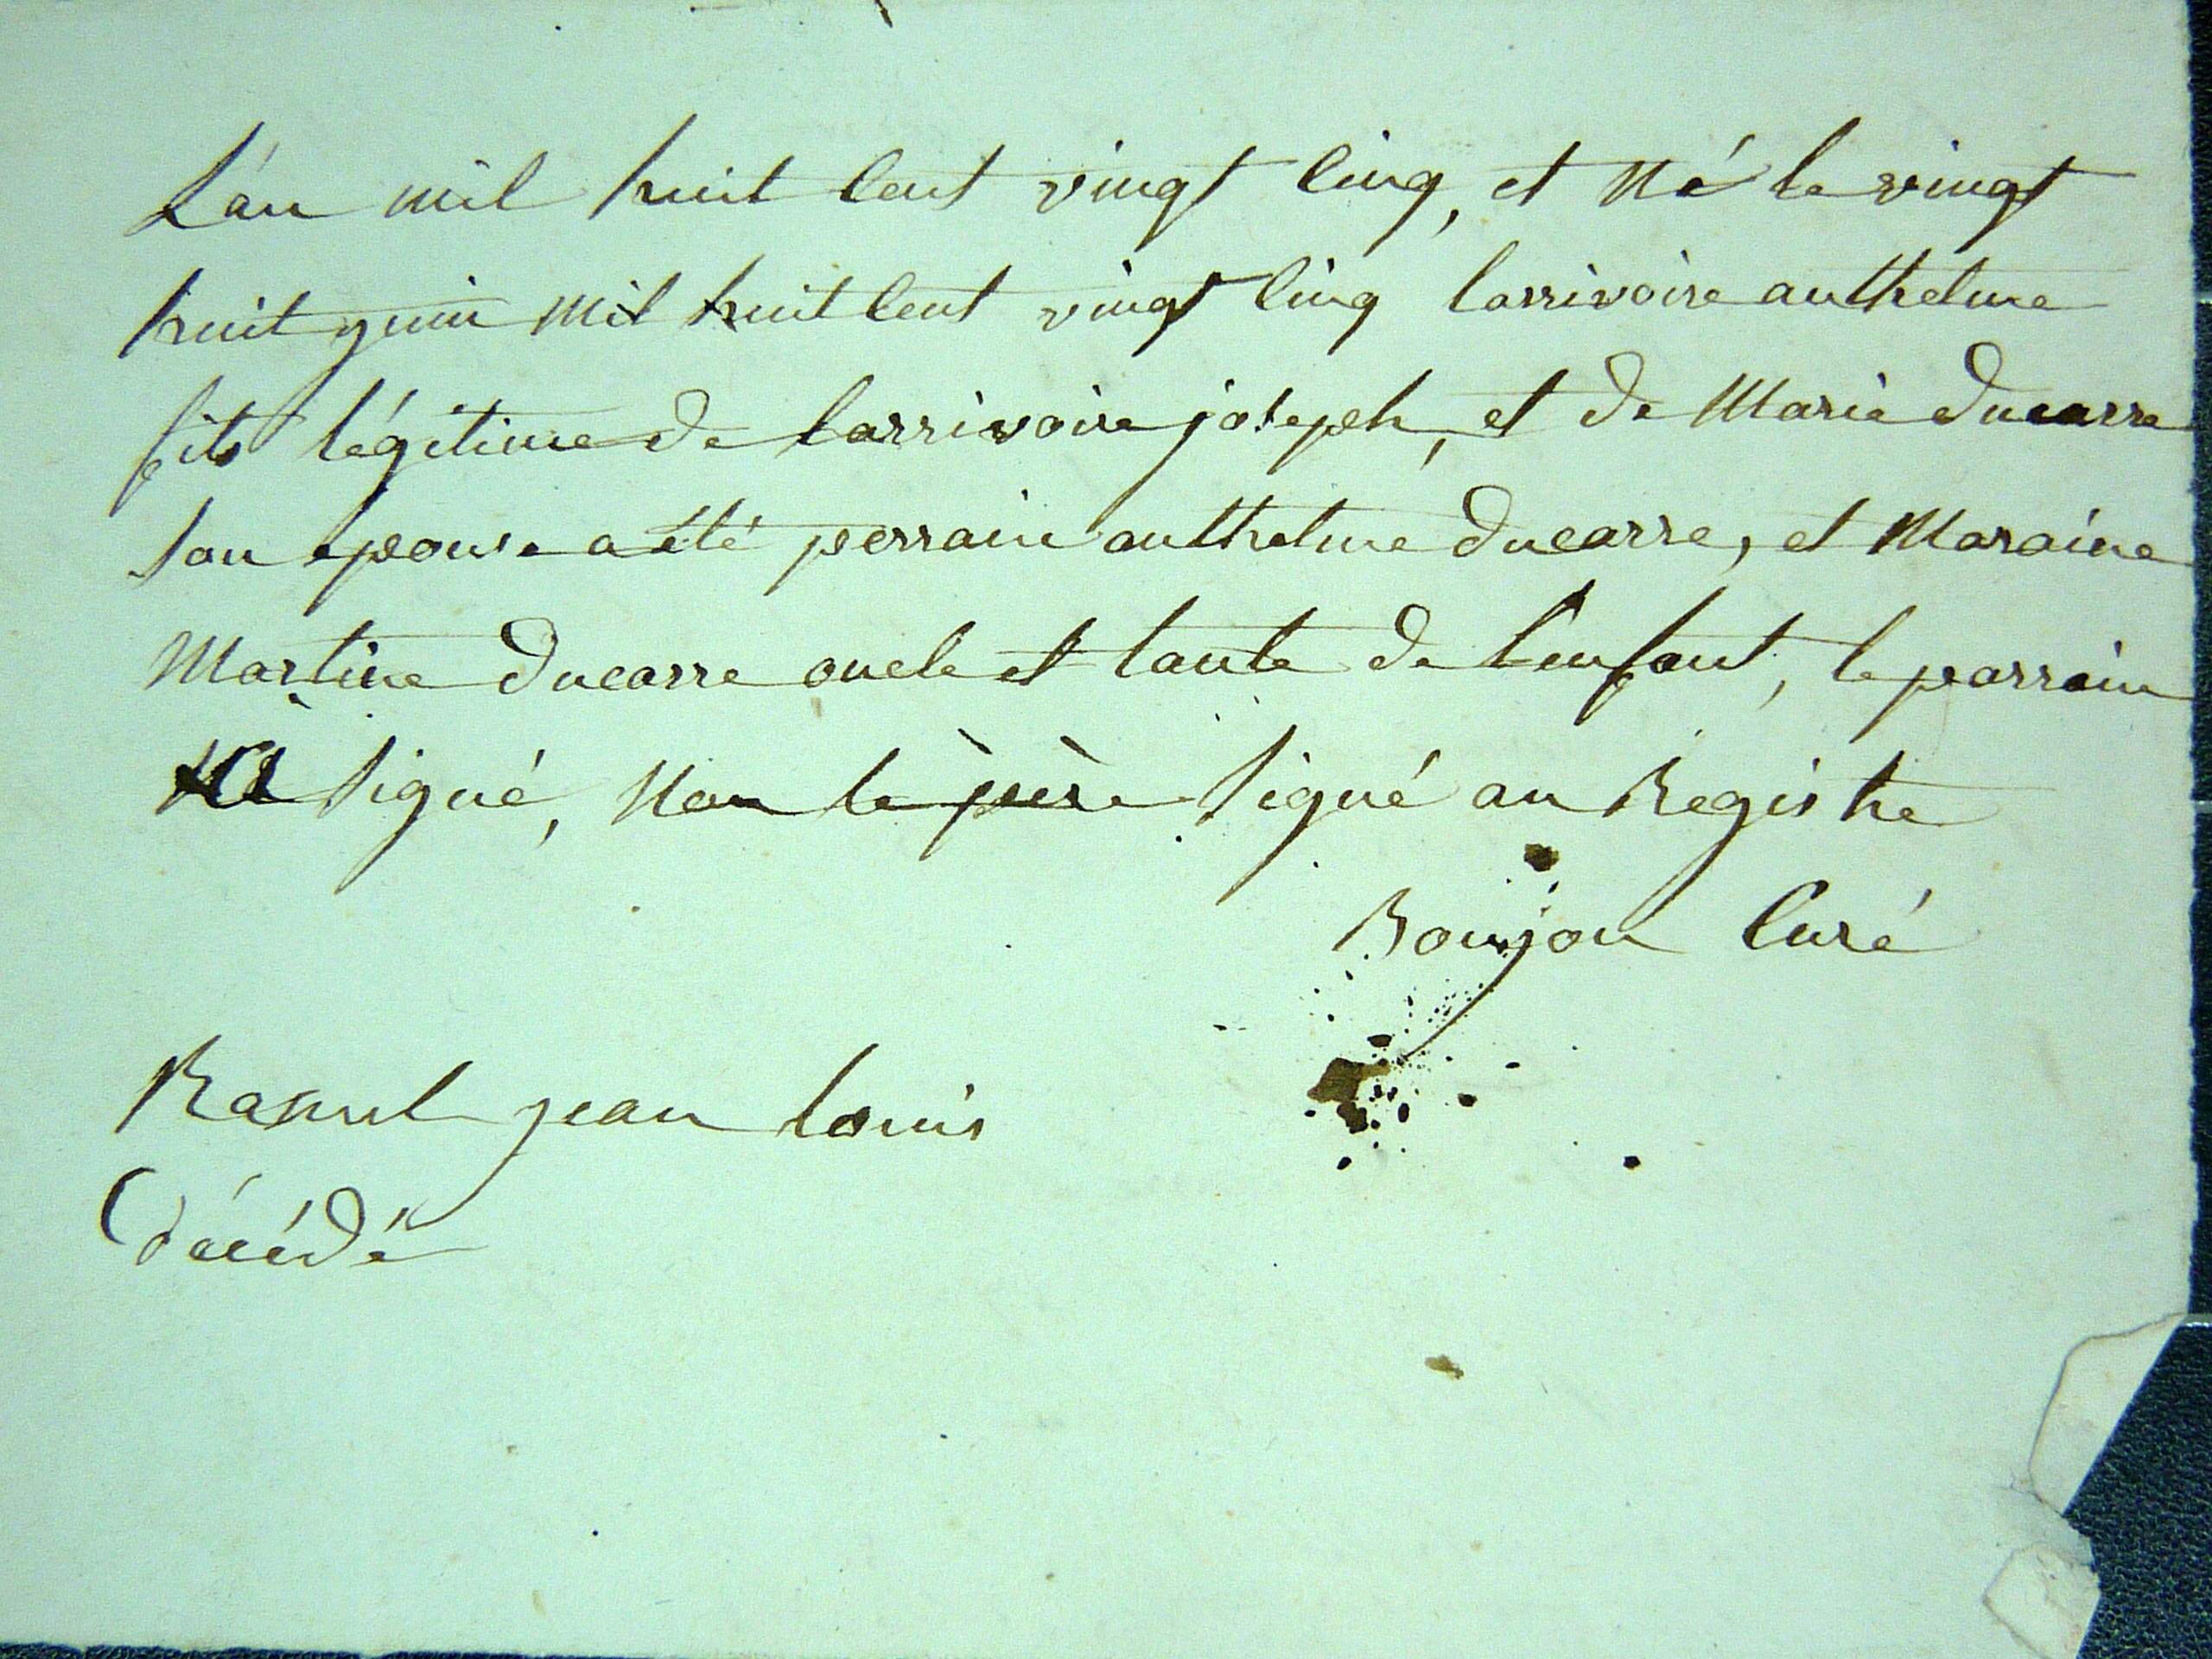 L'an mil huit cent vingt cinq, et Né le vingt
huit juin mil huit cent vingt cinq Carrivoire anthelme
fils légitime de Carrivoire joseph, et de Marie Ducarre
son épouse a été perrain anthelme Ducarre, et Maraine
Martine Ducarre oncle et tante de l'enfant, le parrain
a signé, Non le père signé au Registre
Bonjon Curé
jean louis
décédé